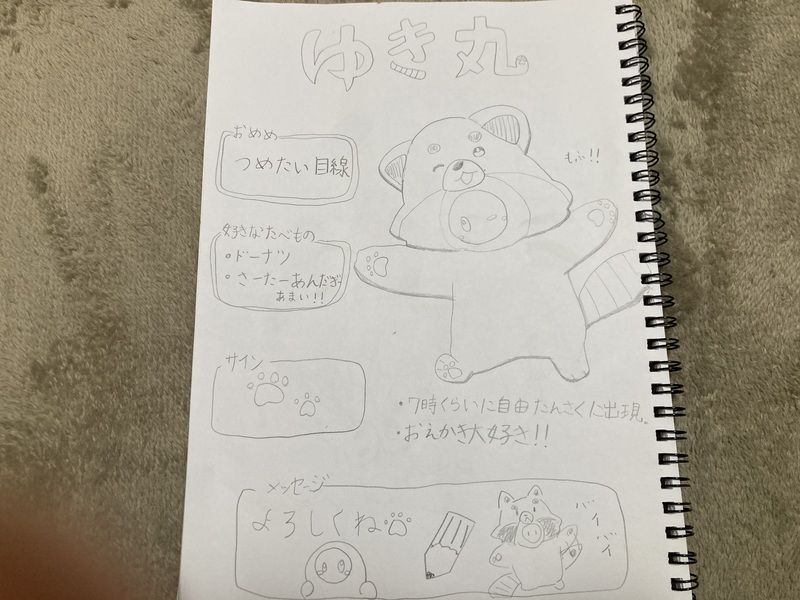 ゆき丸
おめめ
つめたい目線
もふ!!
好きなたべもの
・ドーナツ
・さーたーあんだぎー
あまい!!
サイン
・7時くらいに自由たんさくに出現。
・おえかき大好き!!
メッセージ
よろしくね
バイ
バイ